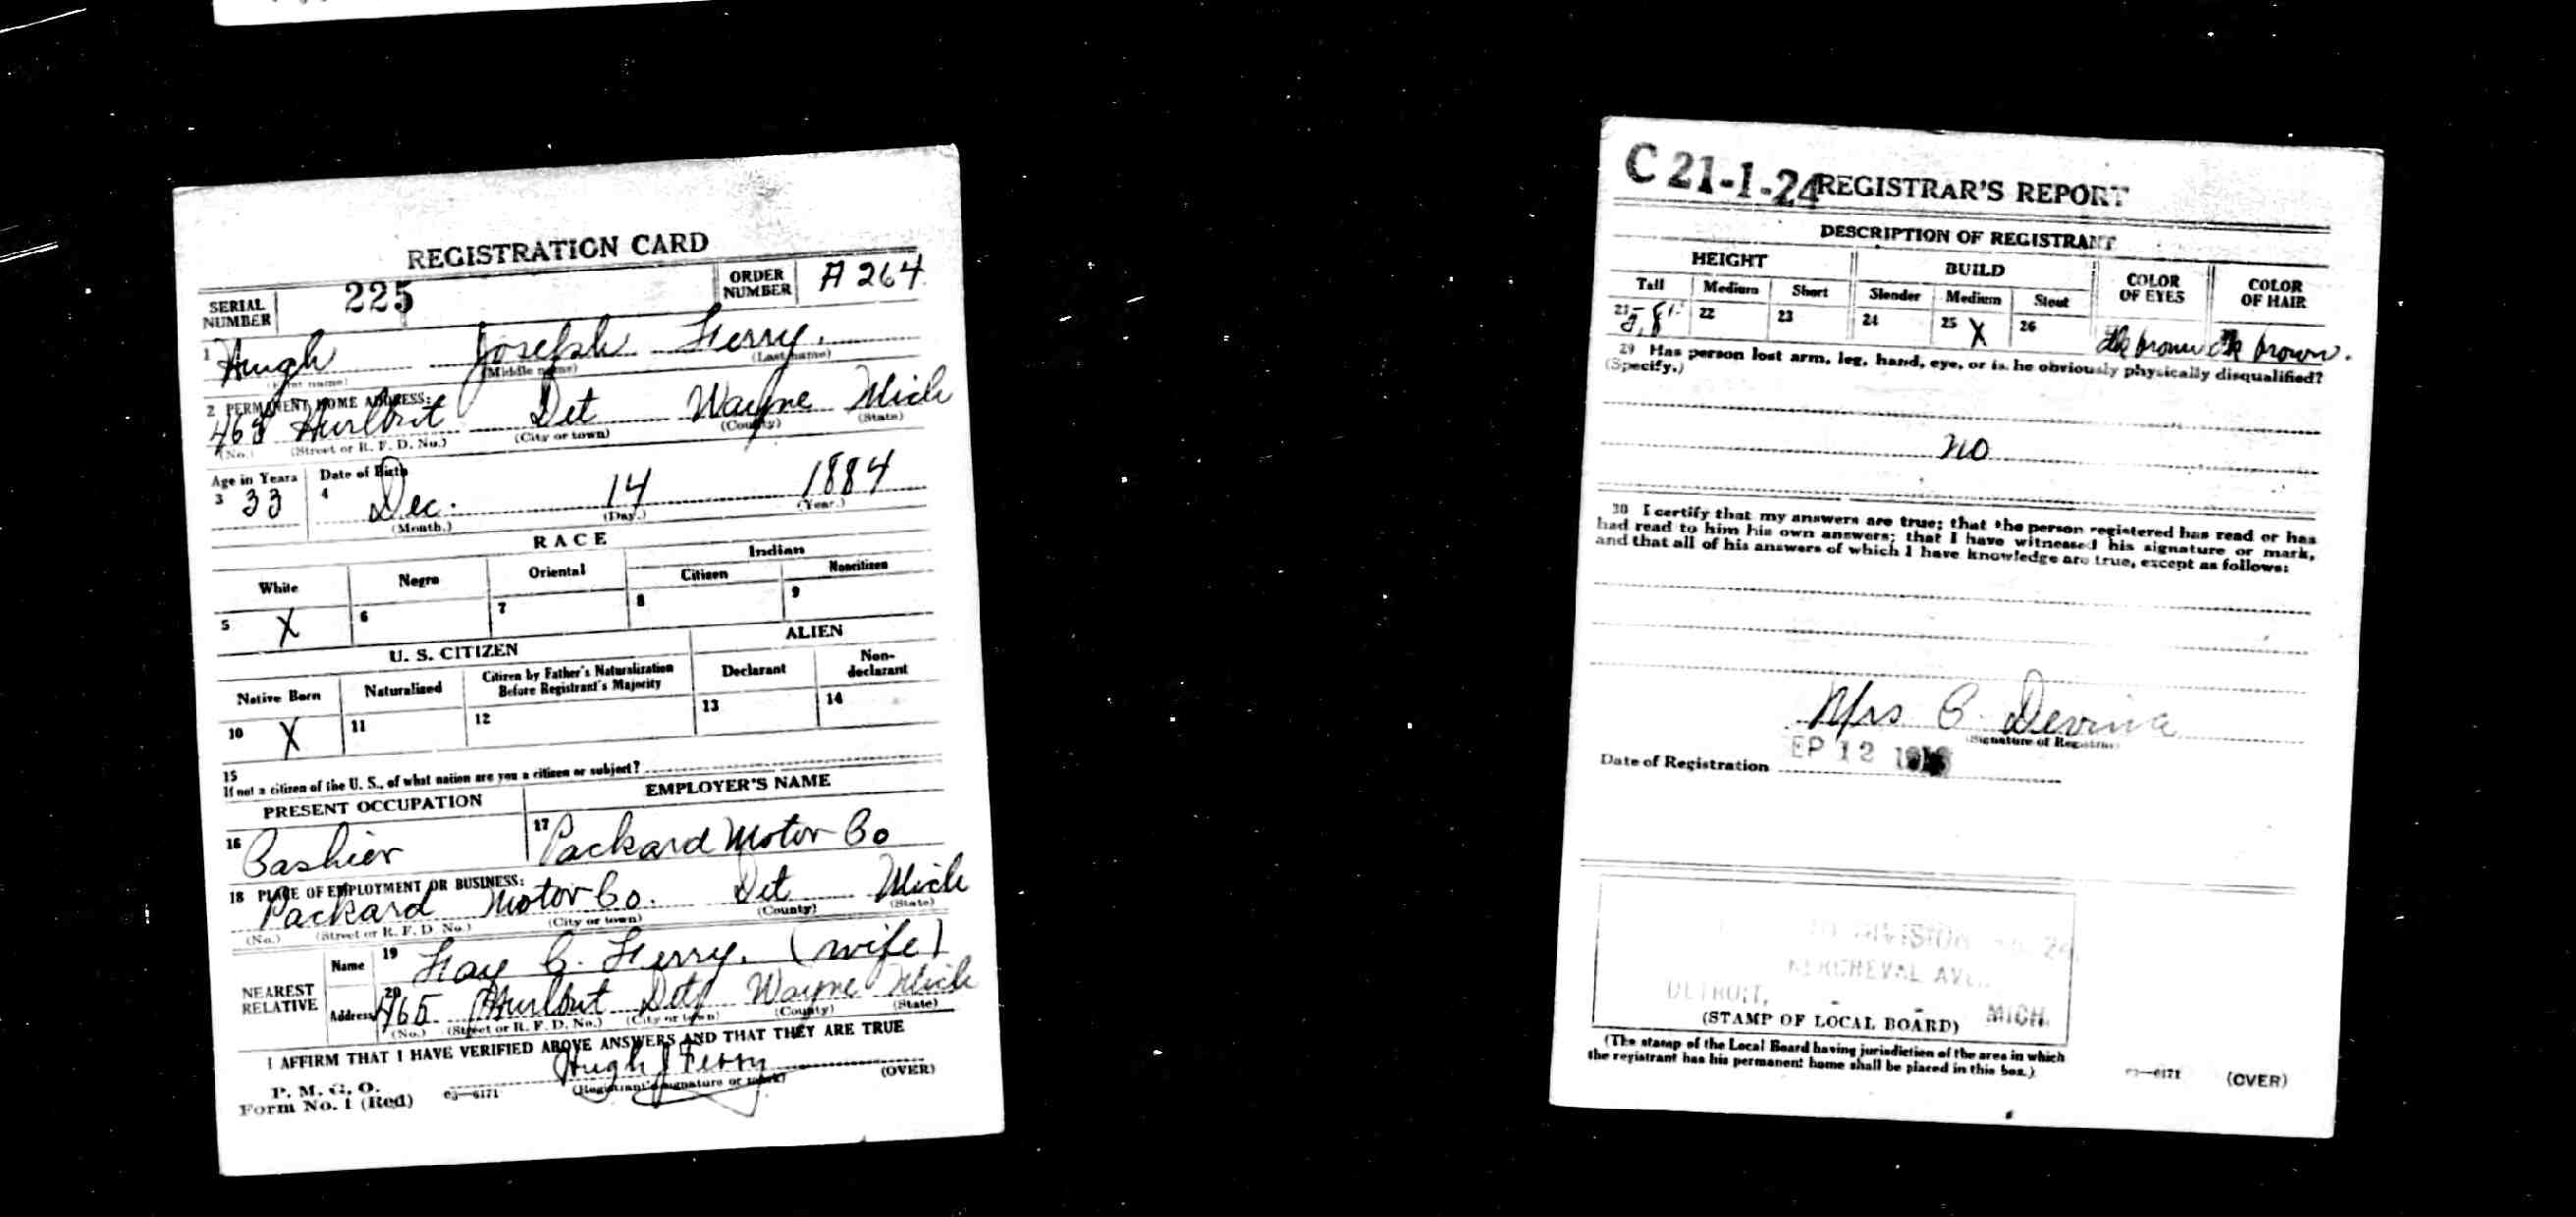 REGISTRATION CARD
SERIAL NUMBER 225 ORDER NUMBER A 264
1 Hugh Joseph Ferry.
(First name) (Middle name) (Last name)
2 PERMANENT HOME ADDRESS:
Hurlbut Det Wayne Mich
(No.) (Street or R. F. D. No.) (City or town) (County) (State)
Age in Years Date of Birth
3 33 4 Dec. 14 1884
(Month.) (Day.) (Year.)
RACE
White Negro Oriental Indian
Citizen Noncitizen
5 X 6 7 8 9
U. S. CITIZEN ALIEN
Native Born Naturalized Citizen by Father's Naturalization Before Registrant's Majority Declarant Non-declarant
10 X 11 12 13 14
15
If not a citizen of the U. S., of what nation are you a citizen or subject?
PRESENT OCCUPATION EMPLOYER'S NAME
16 Cashier 17 Packard Motor Co
18 PLACE OF EMPLOYMENT OR BUSINESS:
Packard Motor Co. Det Mich
(No.) (Street or R. F. D. No.) (City or town) (County) (State)
NEAREST RELATIVE
Name 19 Fay C. Ferry. (wife)
Address 20 465 Hurlbut Det Wayne Mich
(No.) (Street or R. F. D. No.) (City or town) (County) (State)
I AFFIRM THAT I HAVE VERIFIED ABOVE ANSWERS AND THAT THEY ARE TRUE
Hugh J Ferry
P. M. G. O.
Form No. 1 (Red) 03—6171 (Registrant's signature or mark) (OVER)
C 21-1-24 REGISTRAR'S REPORT
DESCRIPTION OF REGISTRANT
HEIGHT BUILD COLOR OF EYES COLOR OF HAIR
Tall Medium Short Slender Medium Stout
21 5,8" 22 23 24 25 X 26 dk brown dk brown.
29 Has person lost arm, leg, hand, eye, or is he obviously physically disqualified?
(Specify.)
no
30 I certify that my answers are true; that the person registered has read or has
had read to him his own answers; that I have witnessed his signature or mark,
and that all of his answers of which I have knowledge are true, except as follows:
Mrs C. Devine
(Signature of Registrar)
Date of Registration EP 12 1918
DIVISION NO. 24
KERCHEVAL AVE.
DETROIT, MICH.
(STAMP OF LOCAL BOARD)
(The stamp of the Local Board having jurisdiction of the area in which
the registrant has his permanent home shall be placed in this box.)
03—6171 (OVER)